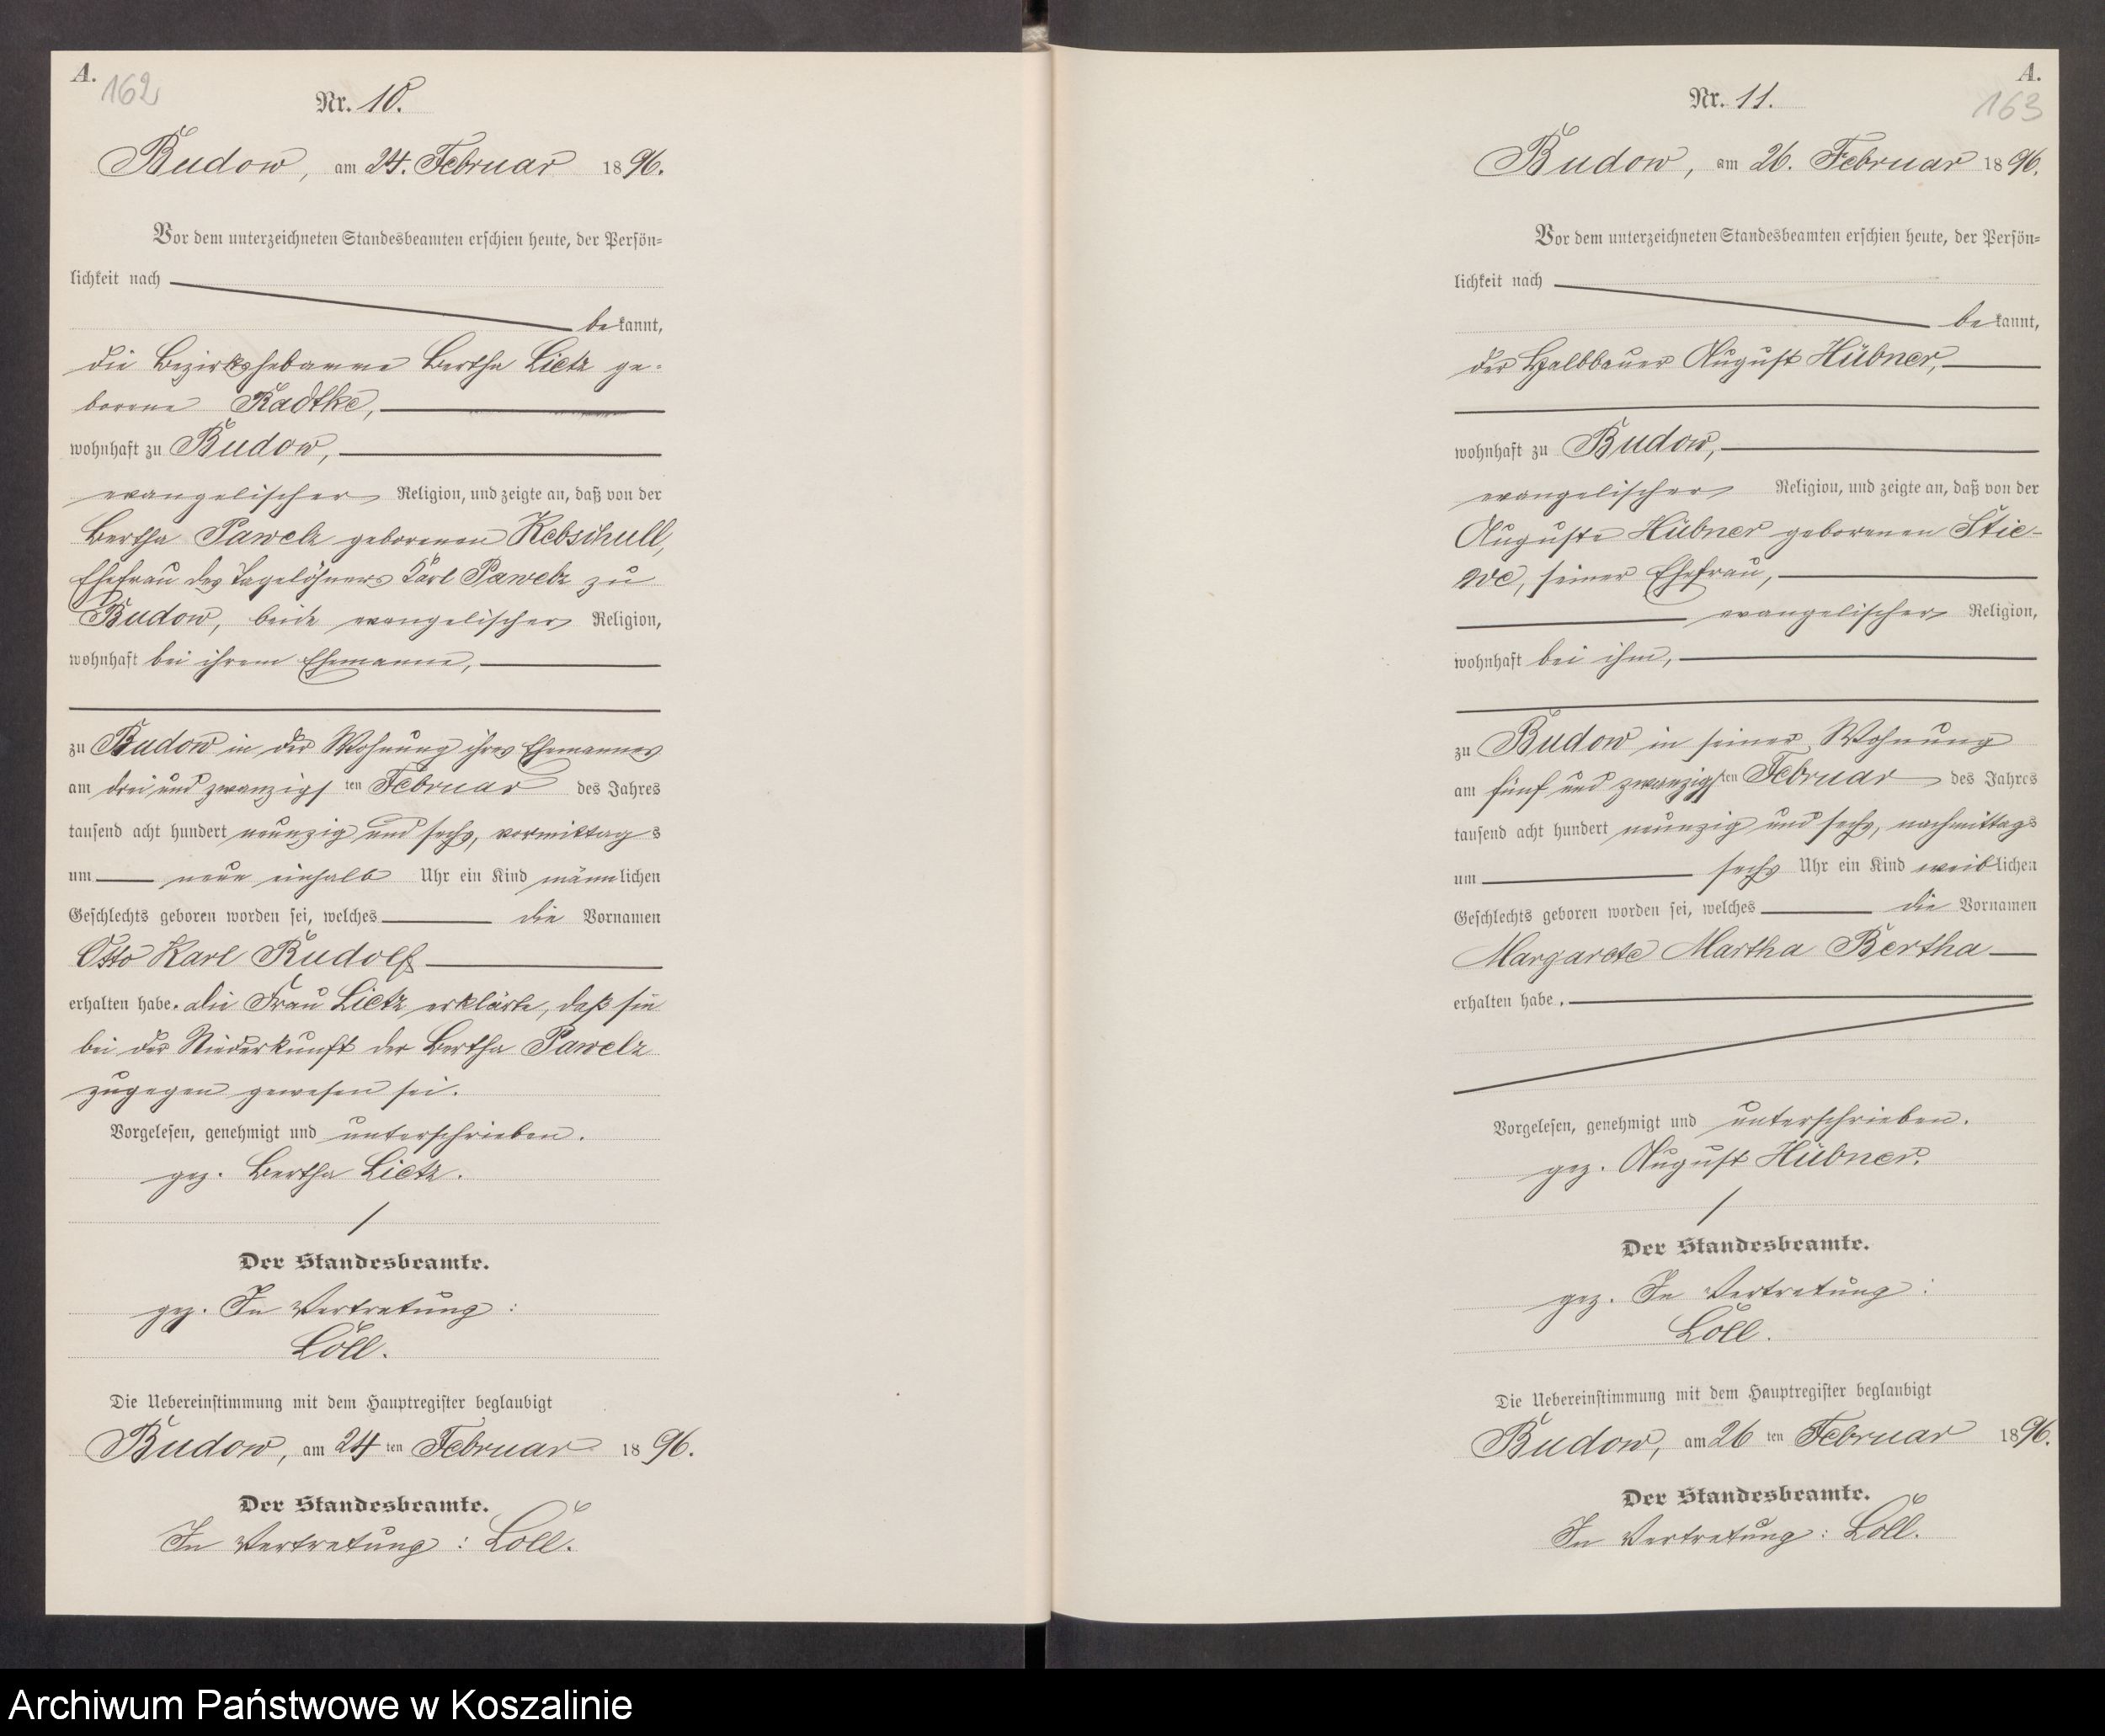 A.
162
Nr. 10.
Budow, am 24. Februar 1896.
Vor dem unterzeichneten Standesbeamten erschien heute, der Persön-
lichkeit nach
bekannt,
die Bezirkshebamme Bertha Lietz ge-
borene Radtke,
wohnhaft zu Budow,
evangelischer Religion, und zeigte an, daß von der
Bertha Pawelz geborenen Kebschull,
Ehefrau des Tagelöhners Karl Pawelz zu
Budow, beide evangelischer Religion,
wohnhaft bei ihrem Ehemanne,
zu Budow in der Wohnung ihres Ehemannes
am drei und zwanzigsten Februar des Jahres
tausend acht hundert neunzig und sechs, vormittags
um neun einhalb Uhr ein Kind männlichen
Geschlechts geboren worden sei, welches die Vornamen
Otto Karl Rudolf
erhalten habe. Die Frau Lietz erklärte, daß sie
bei der Niederkunft der Bertha Pawelz
zugegen gewesen sei.
Vorgelesen, genehmigt und unterschrieben.
gez. Bertha Lietz.
Der Standesbeamte.
gez. In Vertretung:
Löll.
Die Uebereinstimmung mit dem Hauptregister beglaubigt
Budow, am 24ten Februar 1896.
Der Standesbeamte.
In Vertretung: Löll.
A.
163
Nr. 11.
Budow, am 26. Februar 1896.
Vor dem unterzeichneten Standesbeamten erschien heute, der Persön-
lichkeit nach
bekannt,
der Halbbauer August Hübner,
wohnhaft zu Budow,
evangelischer Religion, und zeigte an, daß von der
Auguste Hübner geborenen Stie-
we, seiner Ehefrau,
evangelischer Religion,
wohnhaft bei ihm,
zu Budow in seiner Wohnung
am fünf und zwanzigsten Februar des Jahres
tausend acht hundert neunzig und sechs, nachmittags
um sechs Uhr ein Kind weiblichen
Geschlechts geboren worden sei, welches die Vornamen
Margarete Martha Bertha
erhalten habe.
Vorgelesen, genehmigt und unterschrieben.
gez. August Hübner.
Der Standesbeamte.
gez. In Vertretung:
Löll.
Die Uebereinstimmung mit dem Hauptregister beglaubigt
Budow, am 26ten Februar 1896.
Der Standesbeamte.
In Vertretung: Löll.
Archiwum Państwowe w Koszalinie